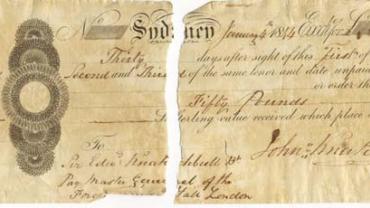 No Sydney January 4th 1844 Exch. for £
Thirty days after sight of this First of
Second and Third of the same tenor and date unpaid
or order the
Fifty Pounds
Sterling value received which place
To
Sir Edw. Knatchbull Bt John
Pay Master General of the
London